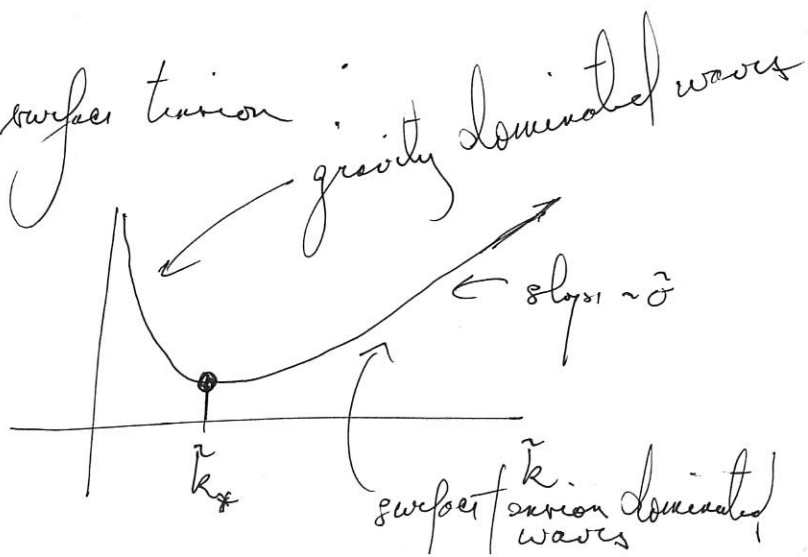 surface tension :
gravity dominated waves
slope ~ σ̃
k̃*
k̃
surface tension dominated
waves